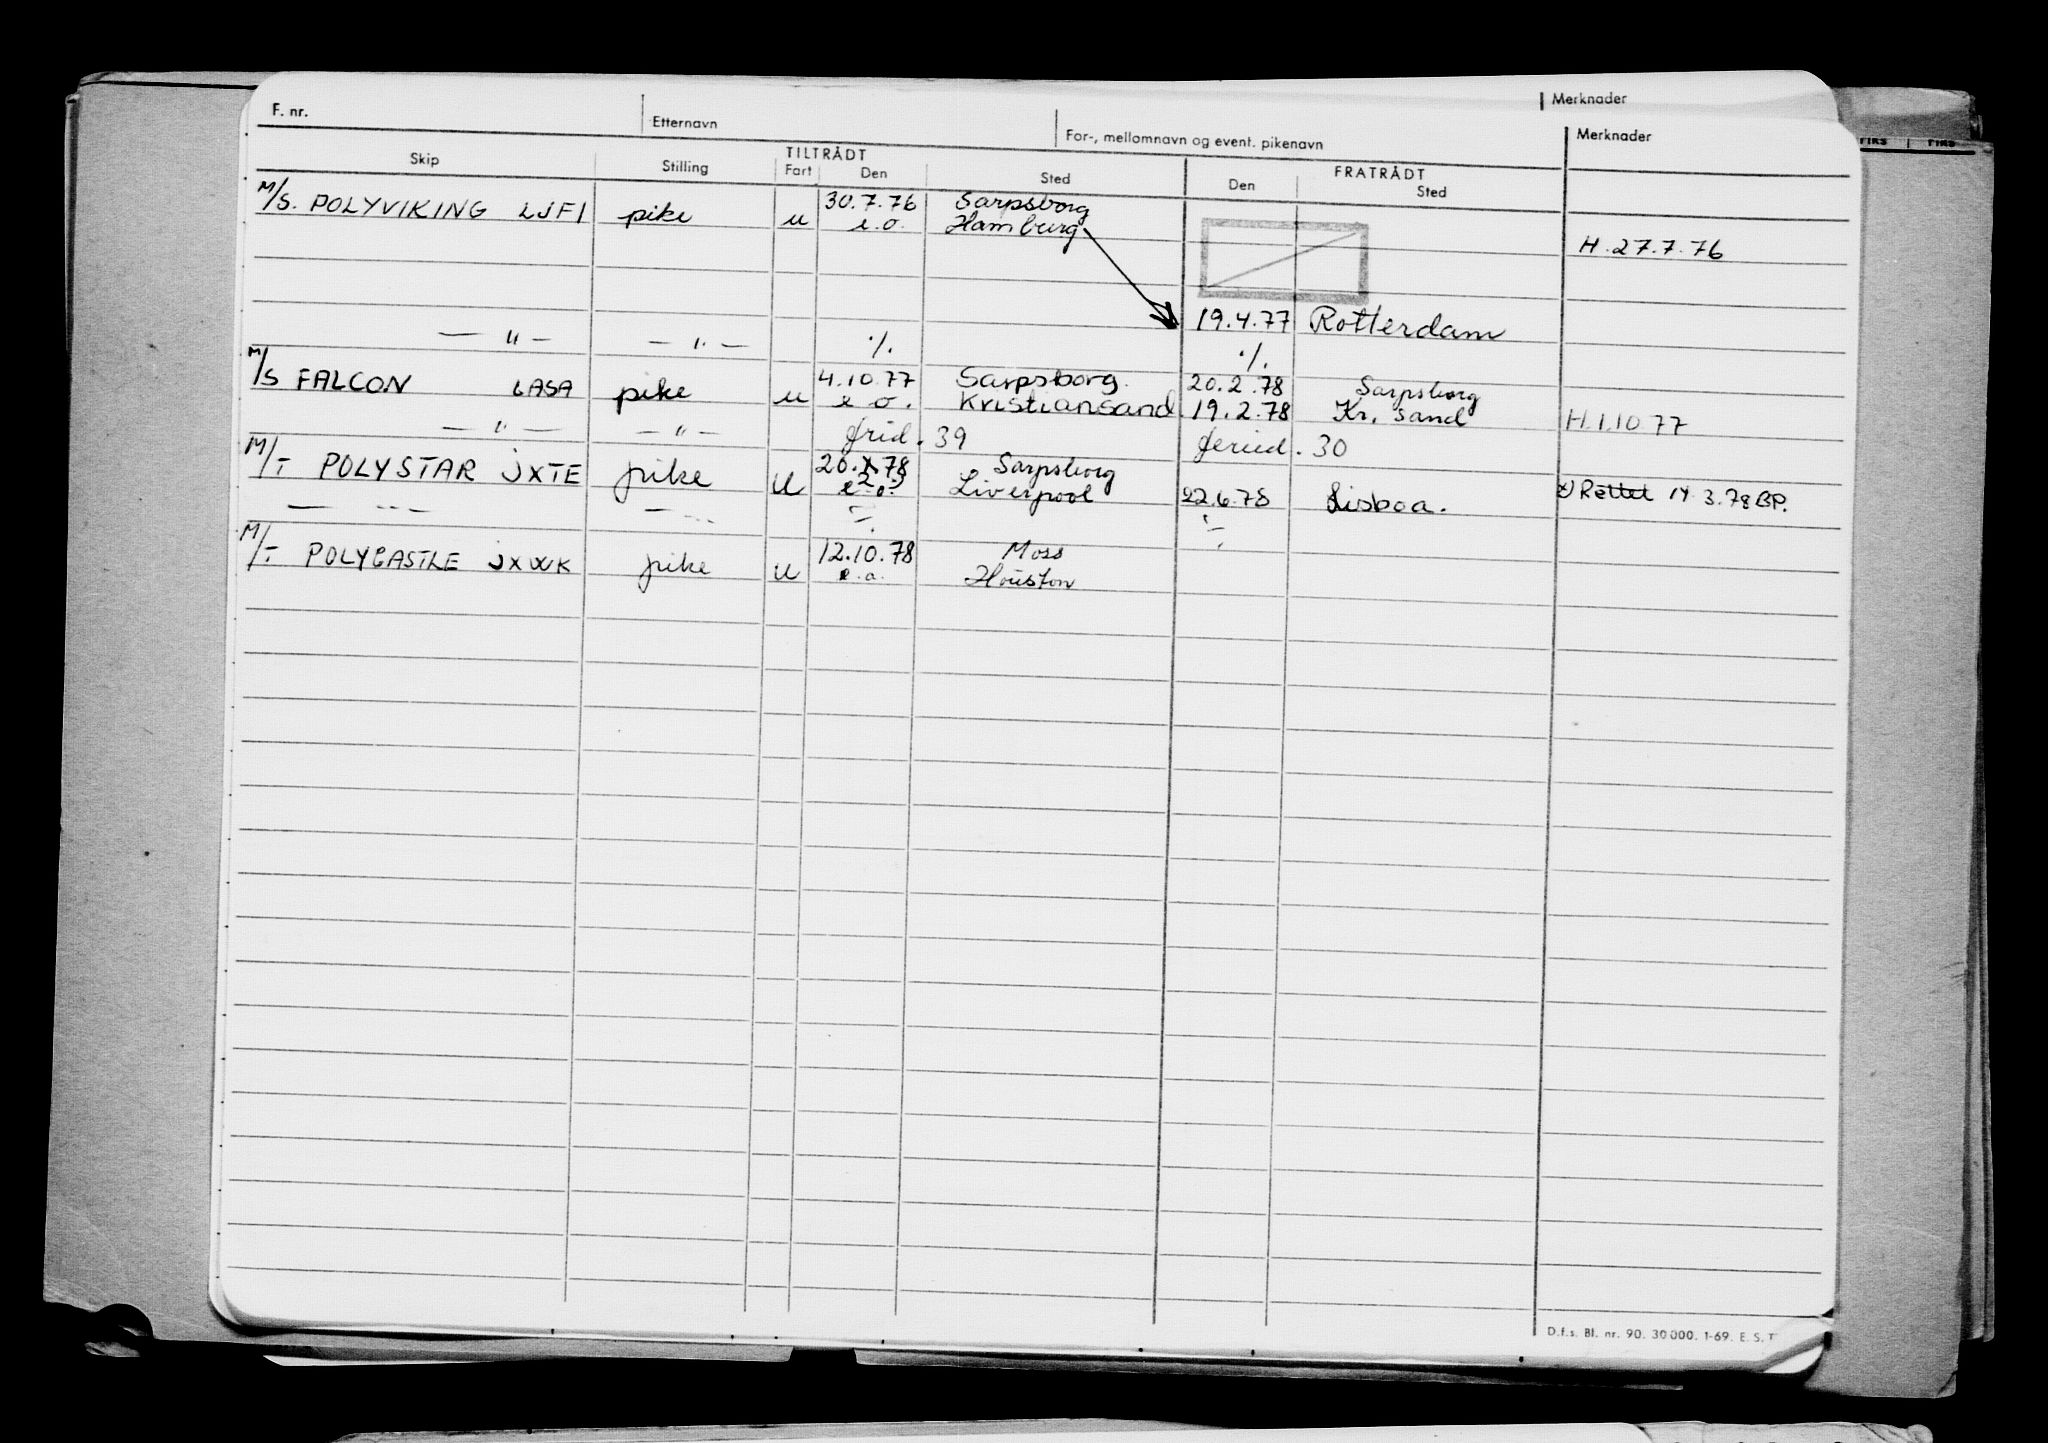 Merknader
F. nr. Etternavn For-, mellomnavn og event. pikenavn Merknader
TILTRÅDT FRATRÅDT
Skip Stilling Fart Den Sted Den Sted
M/S. POLYVIKING LJFI pike u 30.7.76 Sarpsborg
e.o. Hamburg H.27.7.76
19.4.77 Rotterdam
— " — — " — ./. ./.
M/S FALCON LASA pike u 4.10.77 Sarpsborg. 20.2.78 Sarpsborg
e o. Kristiansand 19.2.78 Kr. sand H.1.10 77
— " — — " — frid. 39 feried. 30
M/T POLYSTAR JXTE pike u 20.X.78 Sarpsborg
2
e.o. Liverpool 22.6.78 Lisboa. x) Rettet 14 3.78 BP.
— " — — " —
M/T POLYCASTLE JXWK pike u 12.10.78 Moss
e.o. Houston
D.f.s. Bl. nr. 90. 30 000. 1-69. E. S. T